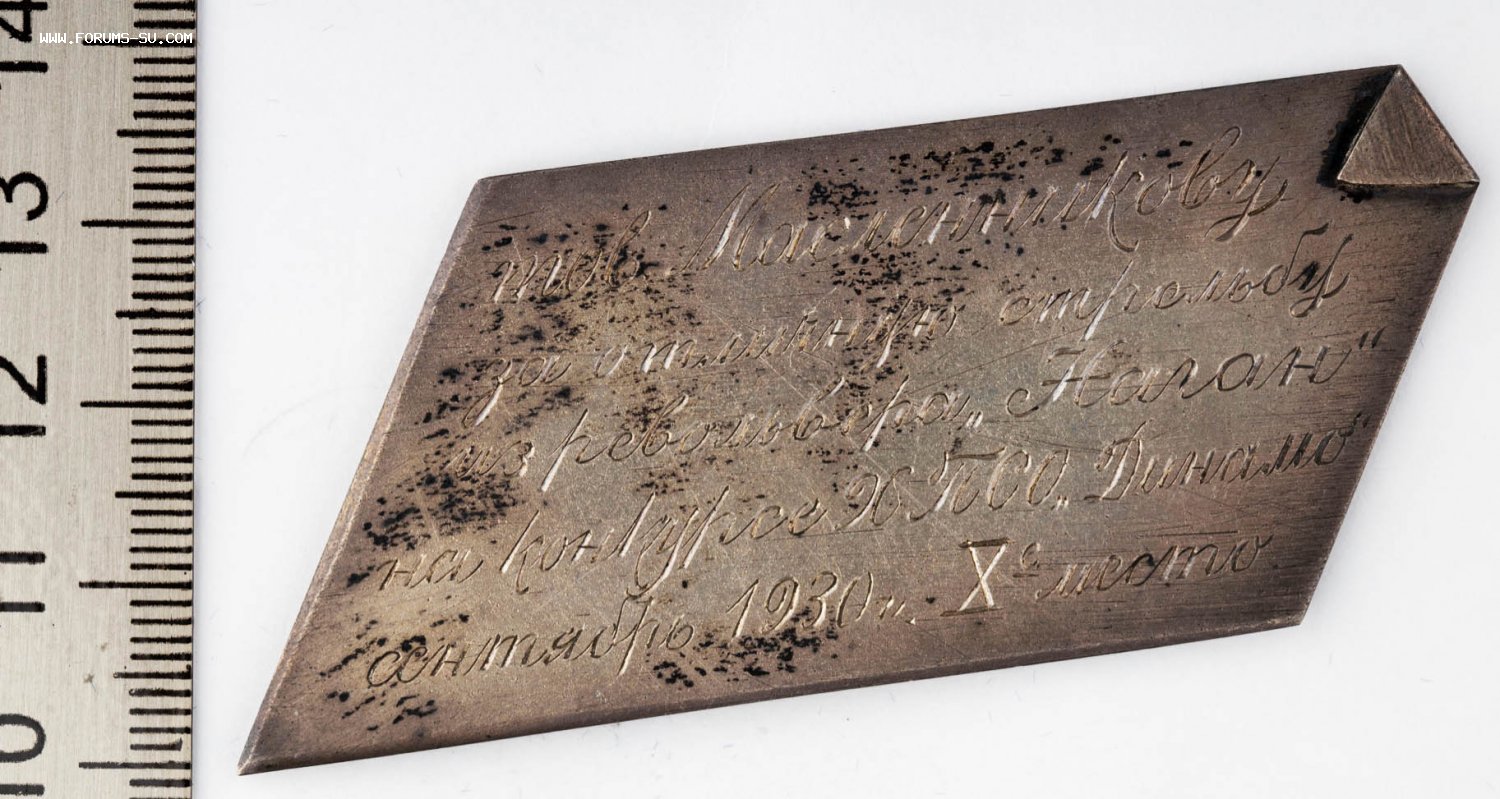 WWW.FORUMS-SU.COM
14
13
12
11
10
тов. Масленникову
за отличную стрельбу
из револьвера „Наган"
на конкурсе ПСО „Динамо"
сентябрь 1930 г. X е место